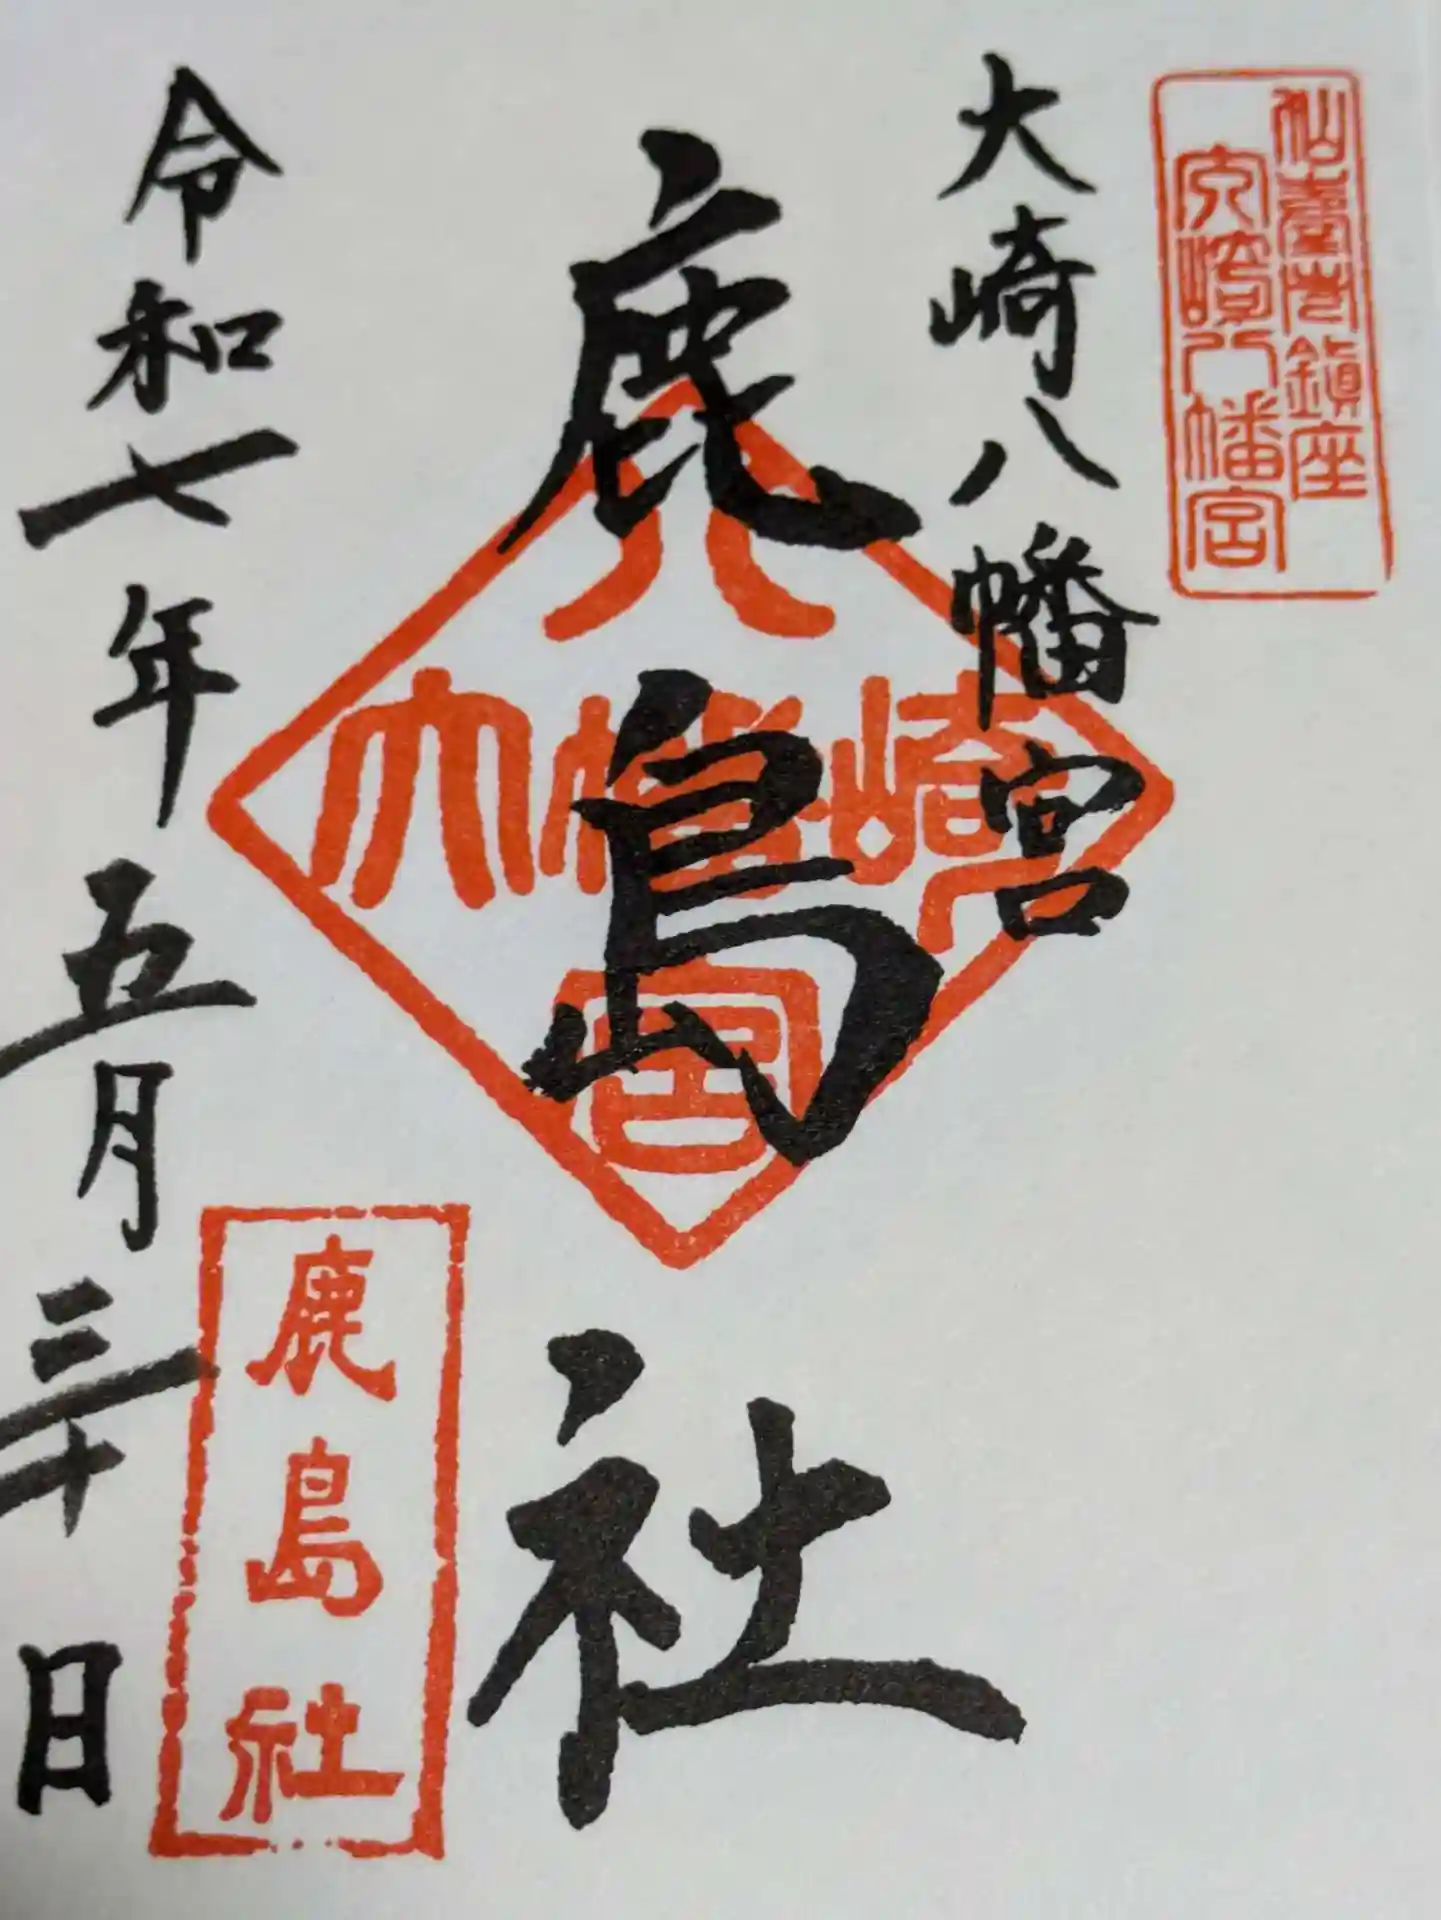 仙臺市鎮座
大崎八幡宮
大崎八幡宮
鹿島社
大崎八幡宮
鹿島社
令和七年五月三十日